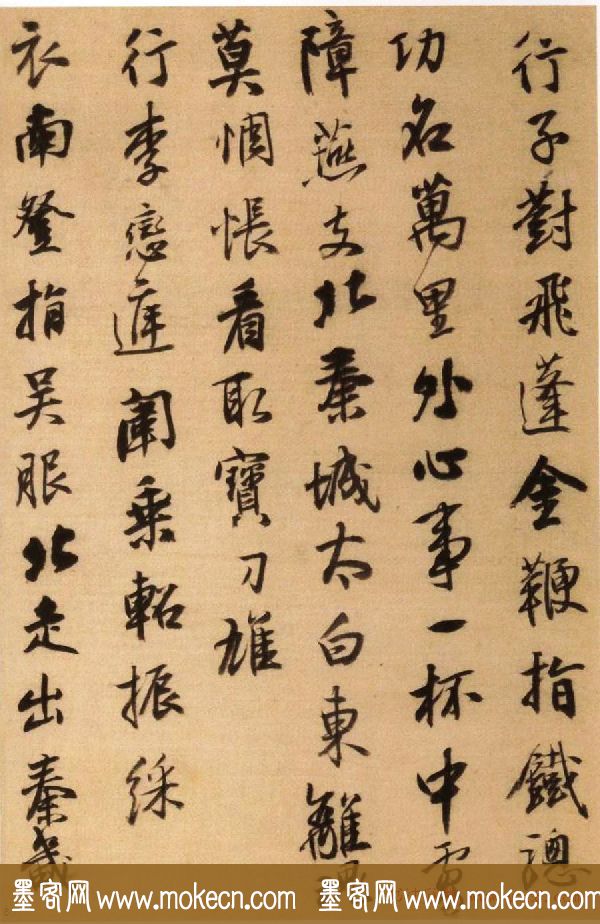 行子對飛蓬金鞭指鐵驄
功名萬里外心事一杯中虜
障燕支北秦城太白東離魂
莫惆悵看取寶刀雄
行李戀庭闈乘軺振綵
衣南登指吳服北走出秦畿
墨客网 www.mokecn.com 墨客网 www.mokecn.com